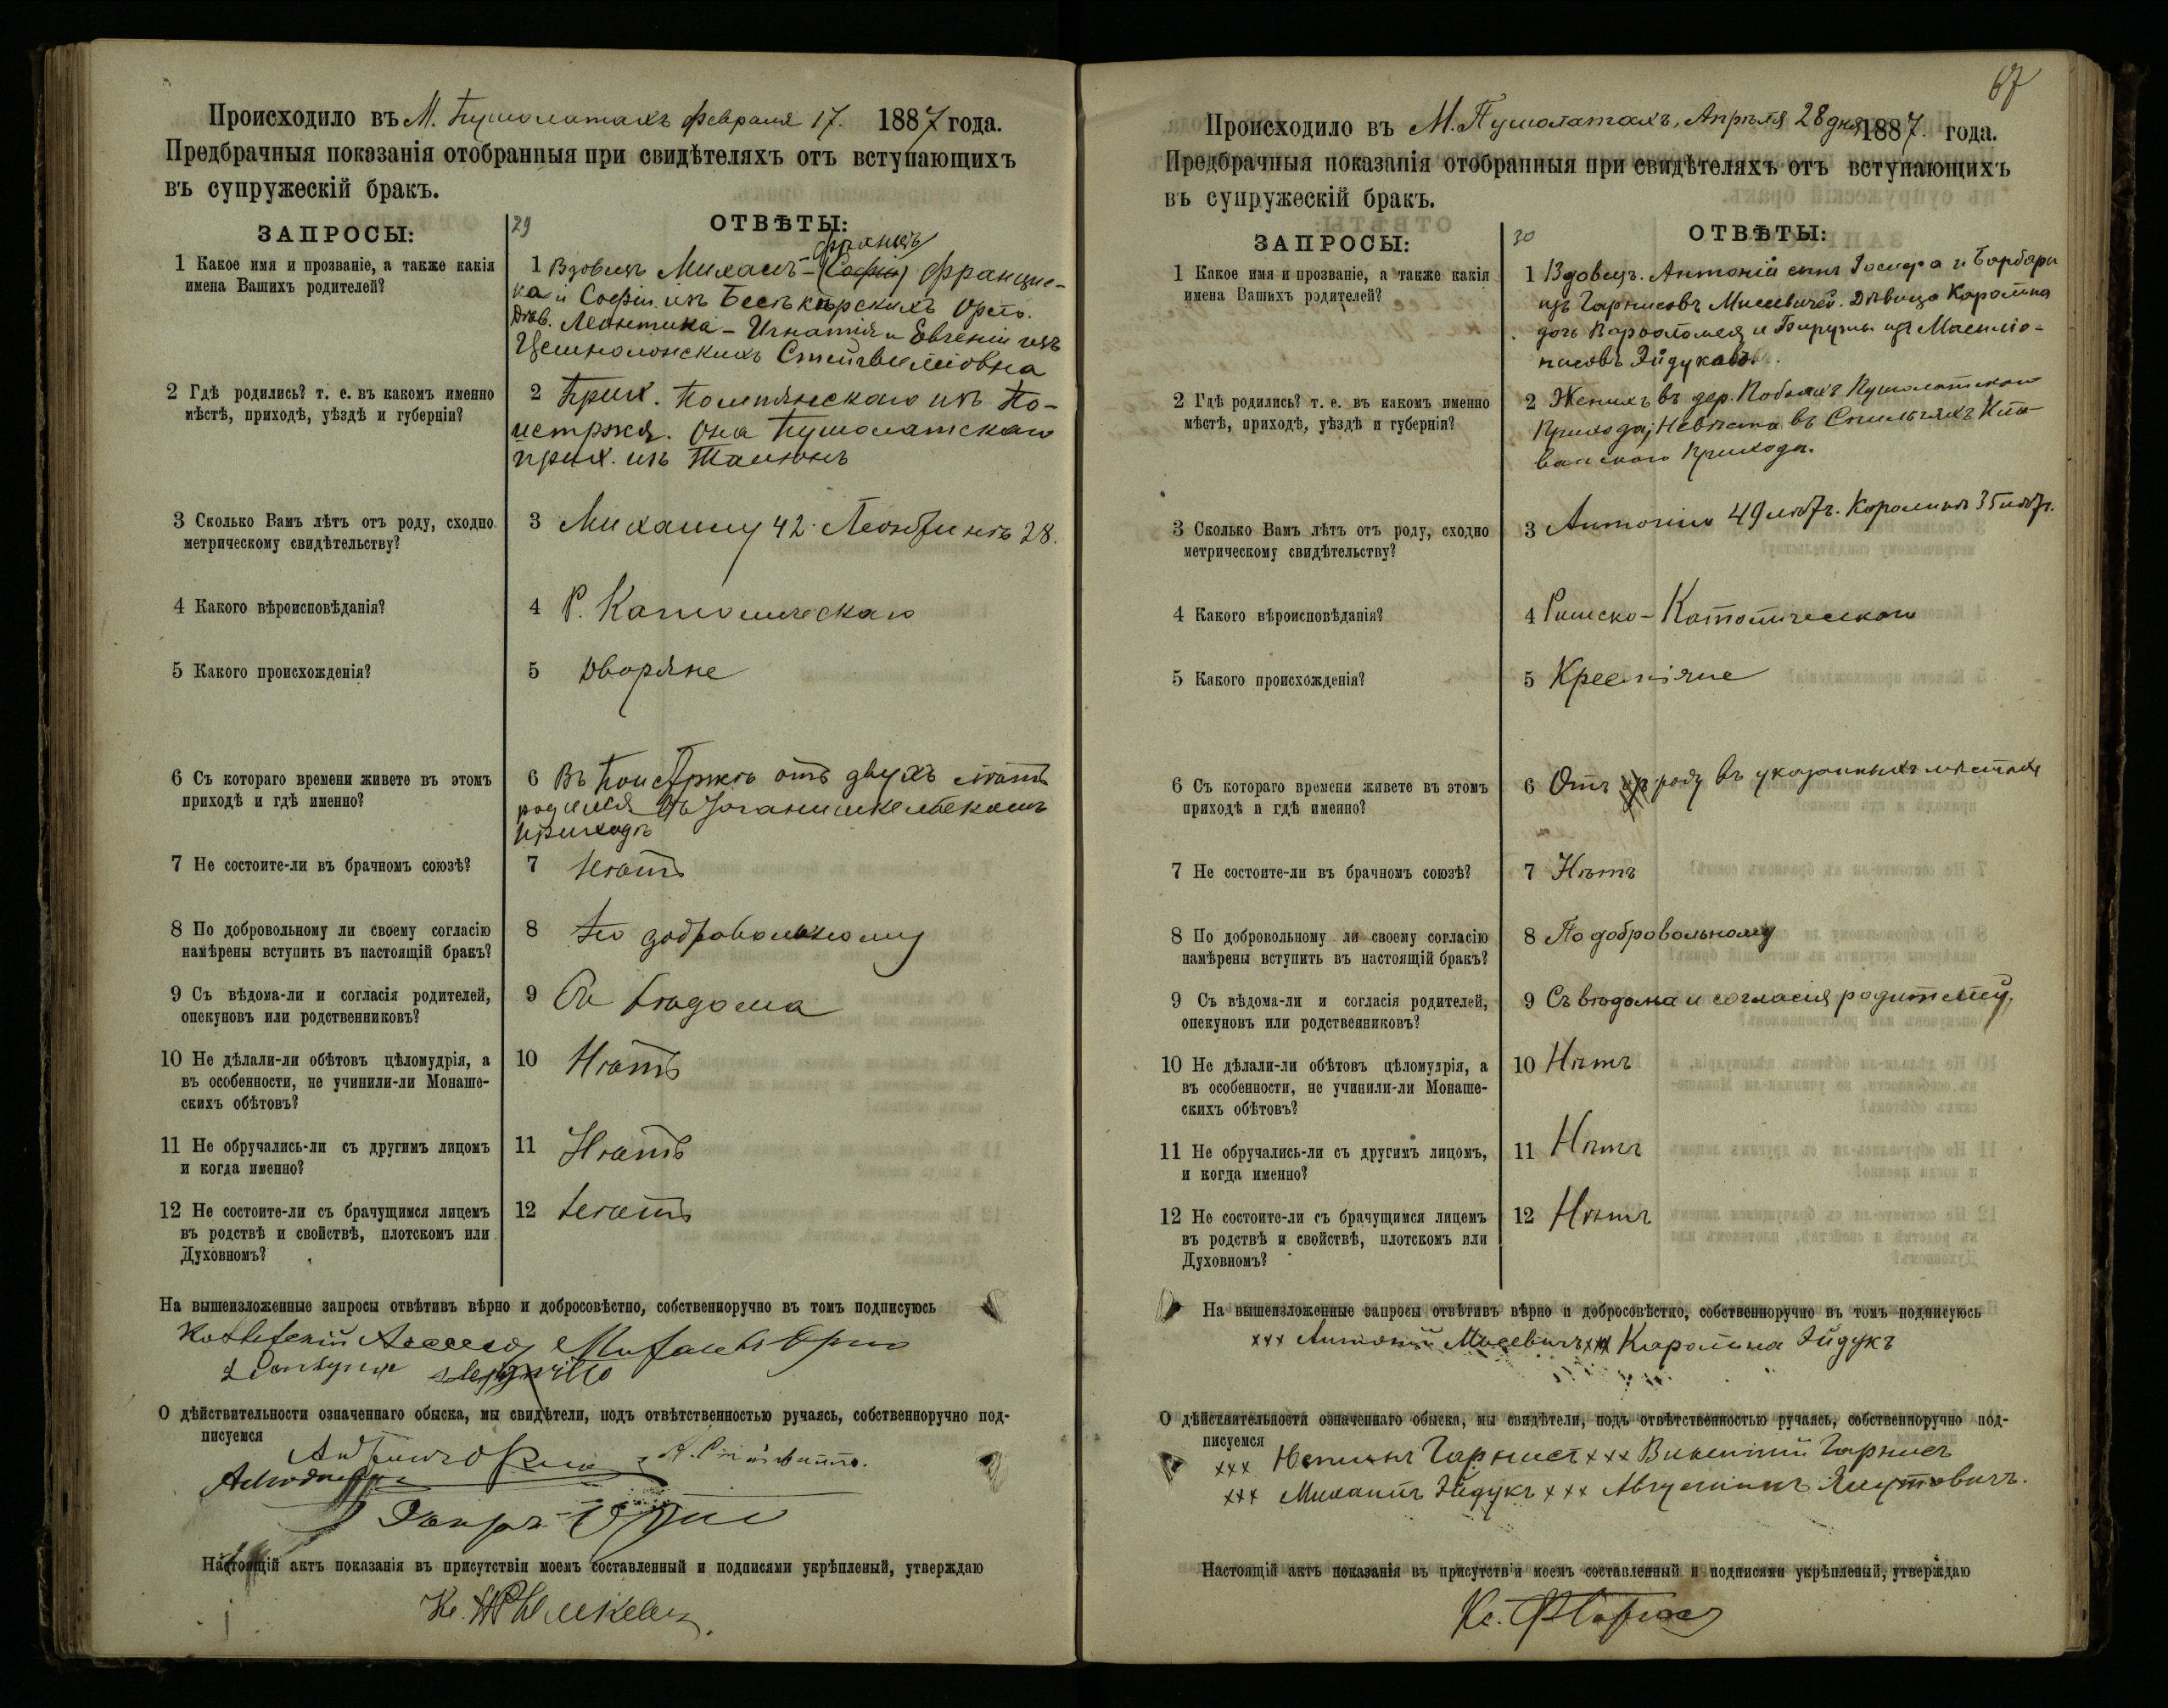 Происходило въ М. Пушолатахъ февраля 17. 1887 года.
Предбрачныя показанія отобранныя при свидѣтеляхъ отъ вступающихъ
въ супружескій бракъ.
ЗАПРОСЫ:
29
ОТВѢТЫ:
1 Какое имя и прозваніе, а также какія
имена Вашихъ родителей?
1 Вдовецъ Михаилъ - (Софіи) Францис-
ка и Софіи изъ
Дѣв. Леонтина - Игнатія и Евгеніи изъ
2 Гдѣ родились? т. е. въ какомъ именно
мѣстѣ, приходѣ, уѣздѣ и губерніи?
2 Прих. Помпянскаго изъ По-
истржя. Она Пушолатскаго
прих. изъ
3 Сколько Вамъ лѣтъ отъ роду, сходно
метрическому свидѣтельству?
3 Михаилу 42. Леонтинѣ 28.
4 Какого вѣроисповѣданія?
4 Р. Католическаго
5 Какого происхожденія?
5 Дворяне
6 Съ котораго времени живете въ этомъ
приходѣ и гдѣ именно?
6 Въ Поистржѣ отъ двухъ лѣтъ
родился въ Іоганишкельскомъ
приходѣ
7 Не состоите-ли въ брачномъ союзѣ?
7 Нѣтъ
8 По добровольному ли своему согласію
намѣрены вступить въ настоящій бракъ?
8 По добровольному
9 Съ вѣдома-ли и согласія родителей,
опекуновъ или родственниковъ?
9 Съ вѣдома
10 Не дѣлали-ли обѣтовъ цѣломудрія, а
въ особенности, не учинили-ли Монаше-
скихъ обѣтовъ?
10 Нѣтъ
11 Не обручались-ли съ другимъ лицомъ
и когда именно?
11 Нѣтъ
12 Не состоите-ли съ брачущимся лицемъ
въ родствѣ и свойствѣ, плотскомъ или
Духовномъ?
12 Нѣтъ
На вышеизложенные запросы отвѣтивъ вѣрно и добросовѣстно, собственноручно въ томъ подписуюсь
О дѣйствительности означеннаго обыска, мы свидѣтели, подъ отвѣтственностью ручаясь, собственноручно под-
писуемся
Настоящій актъ показанія въ присутствіи моемъ составленный и подписями укрѣпленый, утверждаю
67
Происходило въ М. Пушолатахъ, Апрѣля 28 дня 1887 года.
Предбрачныя показанія отобранныя при свидѣтеляхъ отъ вступающихъ
въ супружескій бракъ.
ЗАПРОСЫ:
30
ОТВѢТЫ:
1 Какое имя и прозваніе, а также какія
имена Вашихъ родителей?
1 Вдовецъ. Антоній сынъ Іосифа и Барбары
изъ Гарнисовъ Мисевичей. Дѣвица Каролина
дочь Варѳоломея и
Эйдуковъ.
2 Гдѣ родились? т. е. въ какомъ именно
мѣстѣ, приходѣ, уѣздѣ и губерніи?
2 Женихъ въ дер. Пушолатскаго
Прихода; Невѣста въ
Прихода.
3 Сколько Вамъ лѣтъ отъ роду, сходно
метрическому свидѣтельству?
3 Антонію 49 лѣтъ. Каролинѣ 35 лѣтъ.
4 Какого вѣроисповѣданія?
4 Римско-Католическаго
5 Какого происхожденія?
5 Крестьяне
6 Съ котораго времени живете въ этомъ
приходѣ и гдѣ именно?
6 Отъ роду въ указанныхъ мѣстахъ
7 Не состоите-ли въ брачномъ союзѣ?
7 Нѣтъ
8 По добровольному ли своему согласію
намѣрены вступить въ настоящій бракъ?
8 По добровольному
9 Съ вѣдома-ли и согласія родителей,
опекуновъ или родственниковъ?
9 Съ вѣдома и согласія родителей.
10 Не дѣлали-ли обѣтовъ цѣломудрія, а
въ особенности, не учинили-ли Монаше-
скихъ обѣтовъ?
10 Нѣтъ
11 Не обручались-ли съ другимъ лицомъ,
и когда именно?
11 Нѣтъ
12 Не состоите-ли съ брачущимся лицемъ
въ родствѣ и свойствѣ, плотскомъ или
Духовномъ?
12 Нѣтъ
На вышеизложенные запросы отвѣтивъ вѣрно и добросовѣстно, собственноручно въ томъ подписуюсь
xxx Антоній Мисевичъ xxx Каролина Эйдукъ
О дѣйствительности означеннаго обыска, мы свидѣтели, подъ отвѣтственностью ручаясь, собственноручно под-
писуемся
xxx Гарнисъ xxx Викентій Гарнисъ
xxx Михаилъ Эйдукъ xxx Августинъ Якутовичъ.
Настоящій актъ показанія въ присутствіи моемъ составленный и подписями укрѣпленый, утверждаю